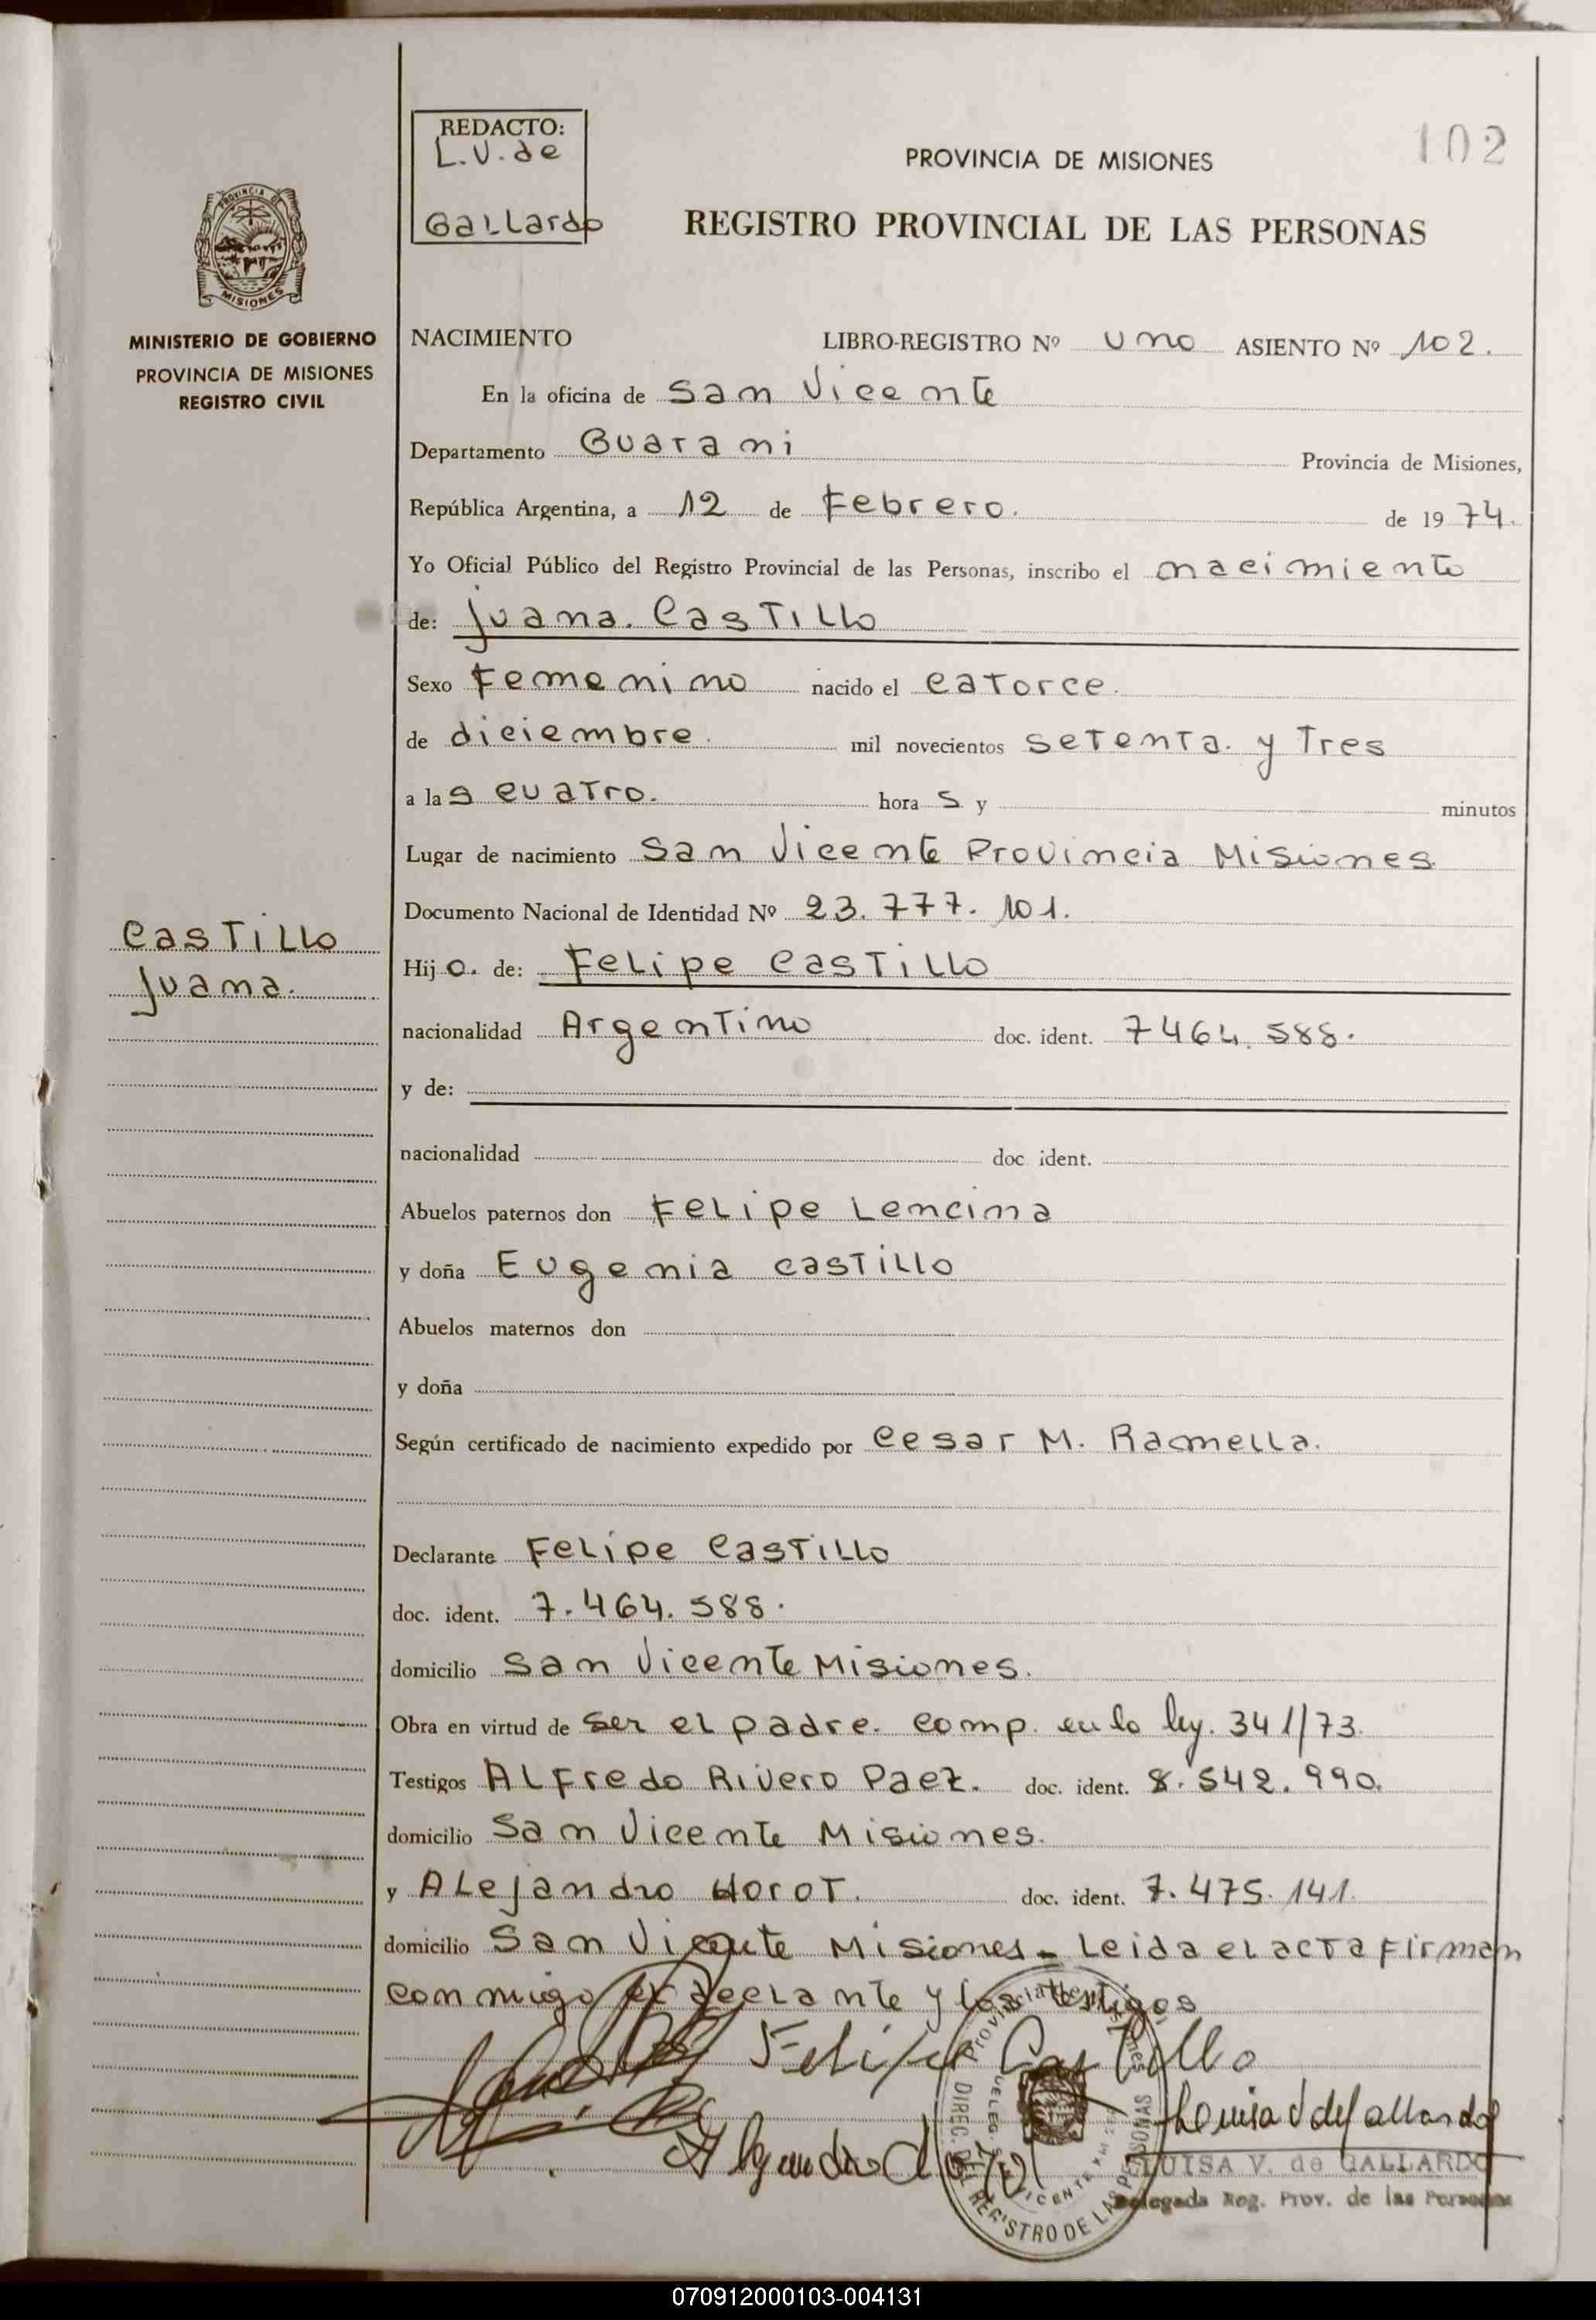 REDACTO:
L.V. de
Gallardo
102
PROVINCIA DE MISIONES
REGISTRO PROVINCIAL DE LAS PERSONAS
PROVINCIA DE
MISIONES
MINISTERIO DE GOBIERNO
PROVINCIA DE MISIONES
REGISTRO CIVIL
NACIMIENTO LIBRO-REGISTRO Nº uno ASIENTO Nº 102.
En la oficina de San Vicente
Departamento Guarani Provincia de Misiones,
República Argentina, a 12 de Febrero. de 1974.
Yo Oficial Público del Registro Provincial de las Personas, inscribo el nacimiento
de: Juana. Castillo
Sexo Femenino nacido el catorce.
de diciembre. mil novecientos setenta. y Tres
a las cuatro. horas y minutos
Lugar de nacimiento San Vicente Provincia Misiones
Documento Nacional de Identidad Nº 23.777.101.
Castillo
Juana.
Hijo. de: Felipe Castillo
nacionalidad Argentino doc. ident. 7464.588.
y de:
nacionalidad doc. ident.
Abuelos paternos don Felipe Lencina
y doña Eugenia Castillo
Abuelos maternos don
y doña
Según certificado de nacimiento expedido por Cesar M. Ramella.
Declarante Felipe Castillo
doc. ident. 7.464.588.
domicilio San Vicente Misiones.
Obra en virtud de ser el padre. comp. en lo ley. 341/73.
Testigos Alfredo Rivero Paez. doc. ident. 8.542.990.
domicilio San Vicente Misiones.
y Alejandro Horot. doc. ident. 7.475.141.
domicilio San Vicente Misiones - Leida el acta firman
conmigo el declante y los testigos
Felipe Castillo
Luisa V de Gallardo
Alejandro
Provincia de Misiones
DIREC. DEL REGISTRO DE LAS PERSONAS
LUISA V. de GALLARDO
Delegada Reg. Prov. de las Personas
070912000103-004131